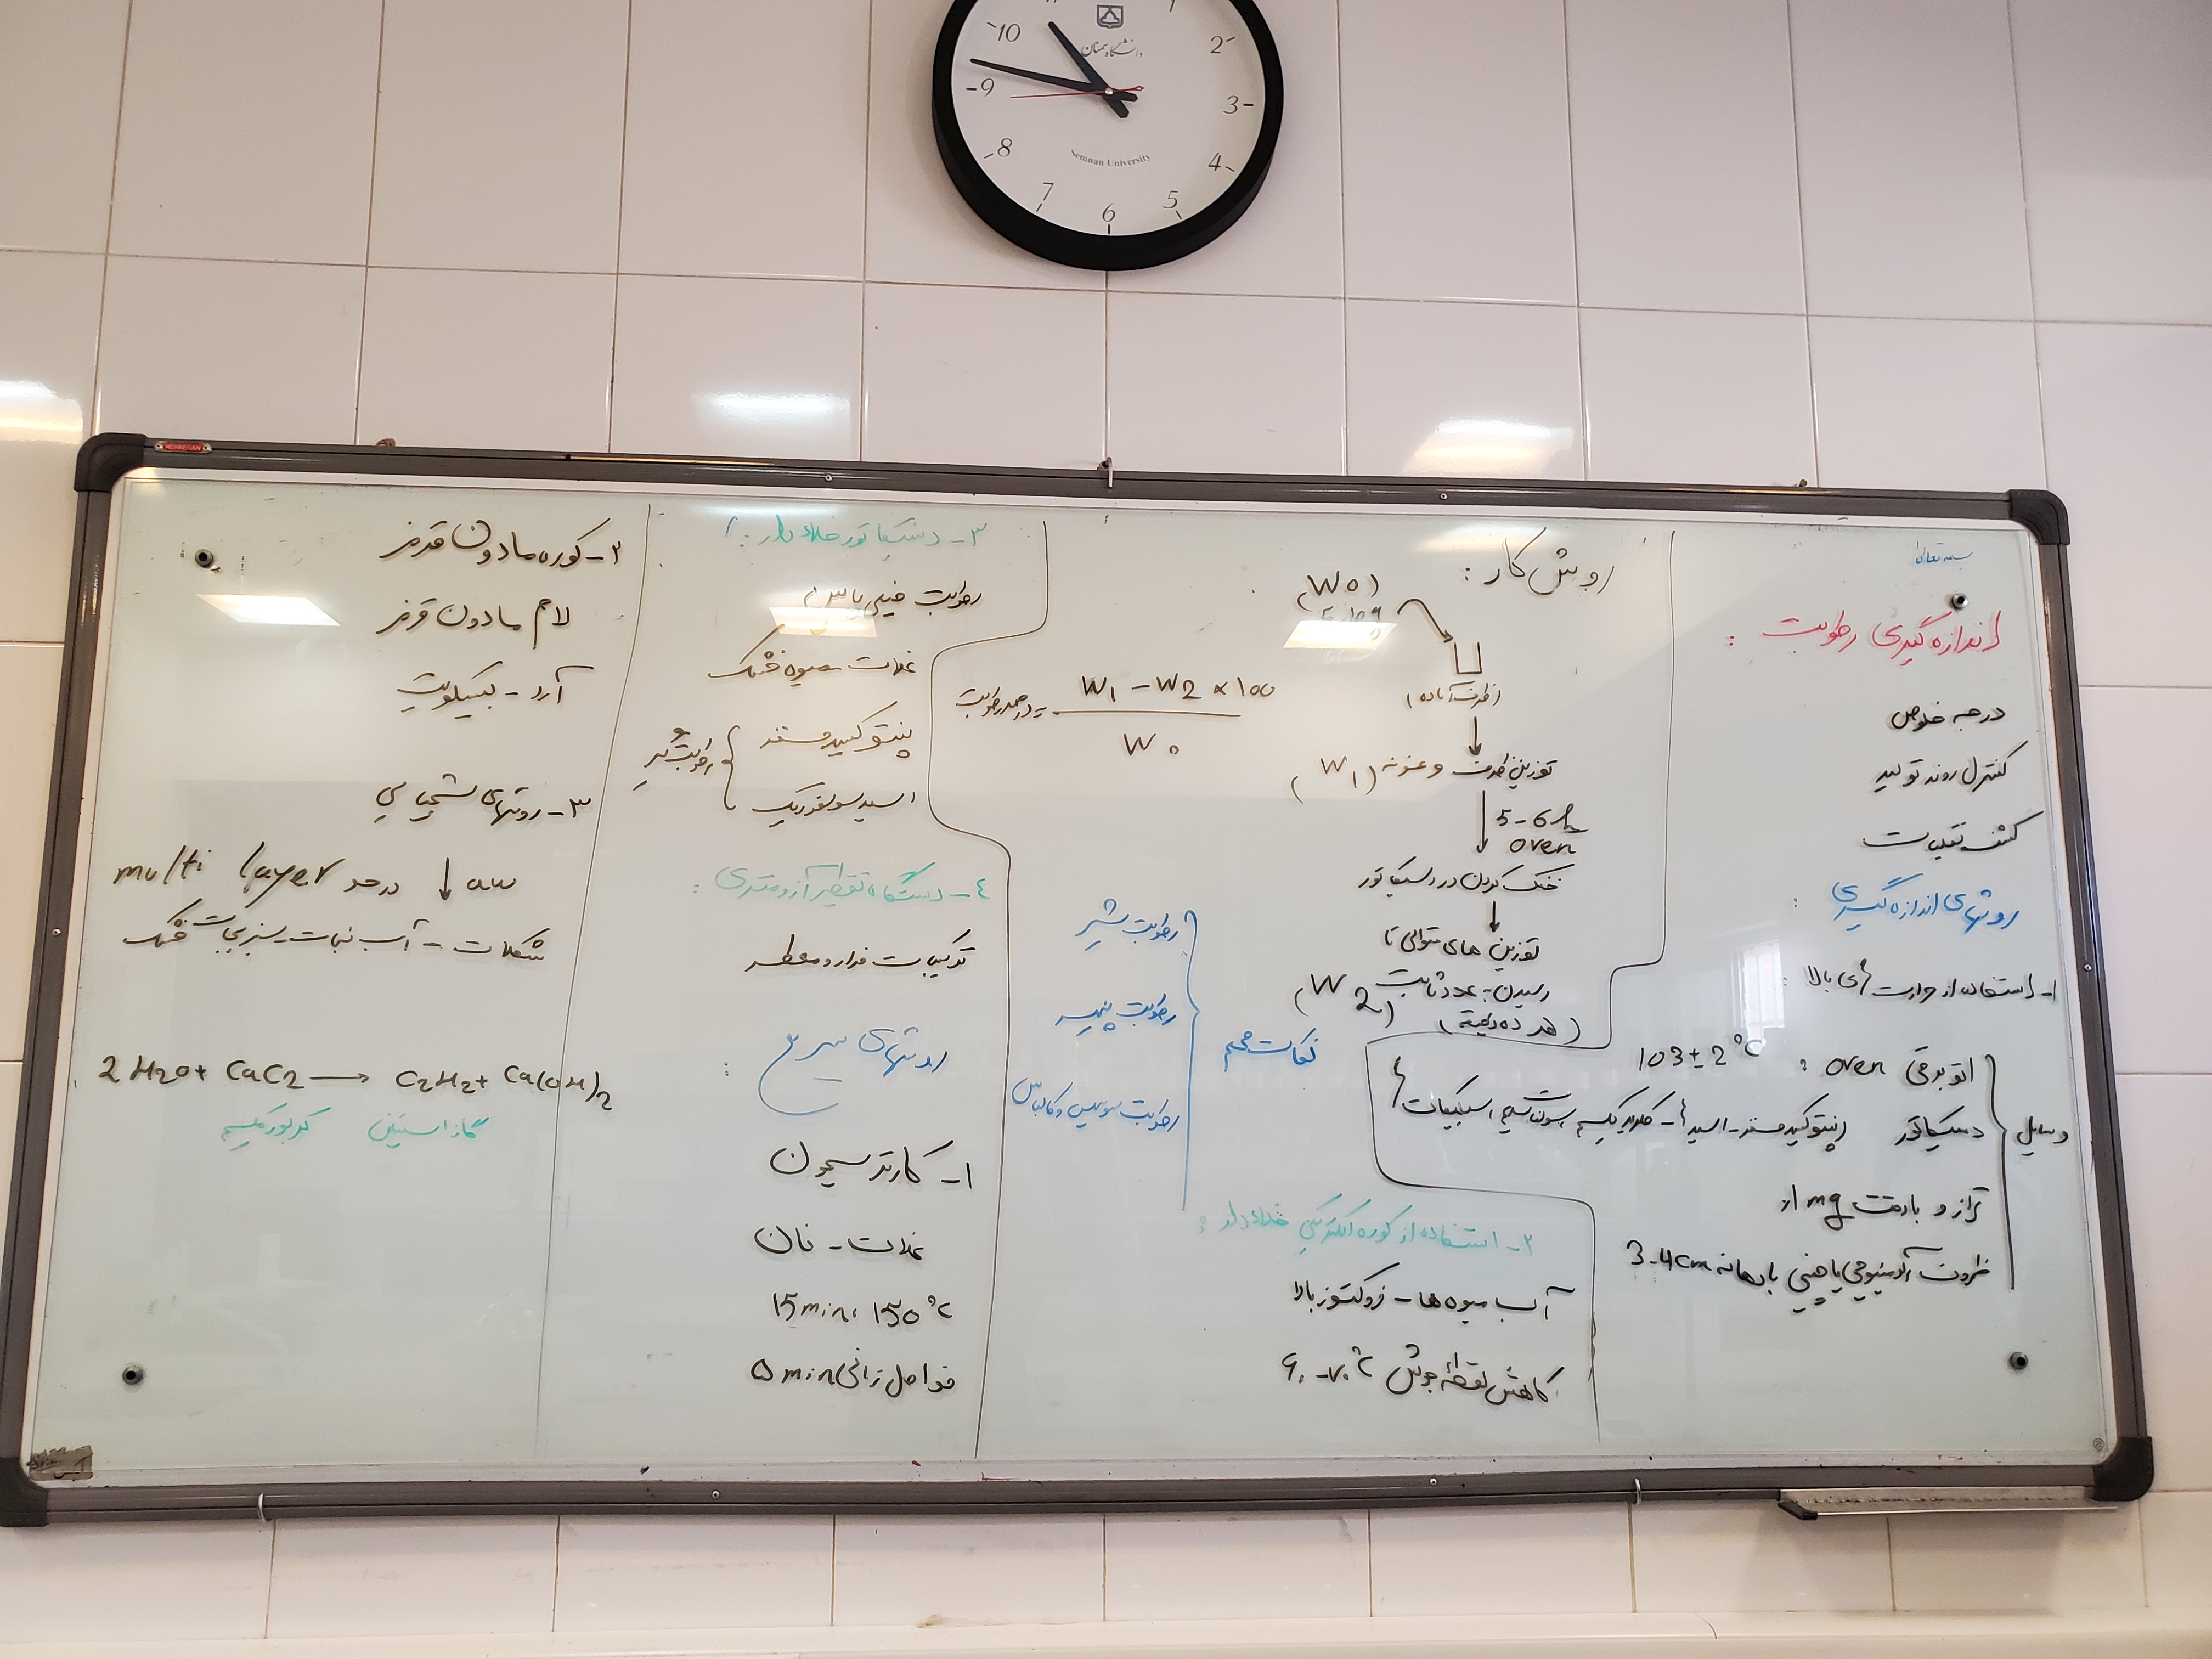 1
2
3
4
5
6
7
8
9
10
دانشگاه سمنان
Semnan University
بسمه تعالی
اندازه گیری رطوبت :
درجه خلوص
کنترل روند تولید
کشف تقلبات
روشهای اندازه گیری :
۱- استفاده از حرارت های بالا :
وسایل
اتو برقی oven : 103 ± 2 °C
دسیکاتور (پنتوکسید فسفر - اسید - کلرید کلسیم
ترازو با دقت ۰/۱ mg
ظروف آلومینیومی یا چینی با دهانه 3-4 cm
روش کار :
(W0)
(ظرف آماده)
توزین ظرف و نمونه (W1)
5-6 h
oven
خنک کردن در دسیکاتور
توزین های متوالی تا
رسیدن به عدد ثابت (W2)
(هر ده دقیقه)
درصد رطوبت = W1 - W2 × 100
W0
نکات مهم
رطوبت شیر
رطوبت پنیر
رطوبت سوسیس و کالباس
۲- استفاده از کوره الکتریکی خلاء دار :
آب میوه ها - فروکتوز بالا
کاهش نقطه جوش ۶۰-۷۰ °C
۳- دسیکاتور خلاء دار :
رطوبت خیلی پایین
غلات میوه خشک
پنتوکسید فسفر
اسید سولفوریک
رطوبت گیر
۴- دستگاه تقطیر آزومتری :
ترکیبات فرار و معطر
روشهای سریع :
۱- کارتر سیمون
غلات - نان
15 min , 150 °C
فواصل زمانی ۵ min
۲- کوره مادون قرمز
لامپ مادون قرمز
آرد - بیسکویت
۳- روشهای شیمیایی
multi layer درصد ↓ aw
شکلات - آب نبات - سبزیجات خشک
2 H2O + CaC2 → C2H2 + Ca(OH)2
گاز استیلن کربور کلسیم